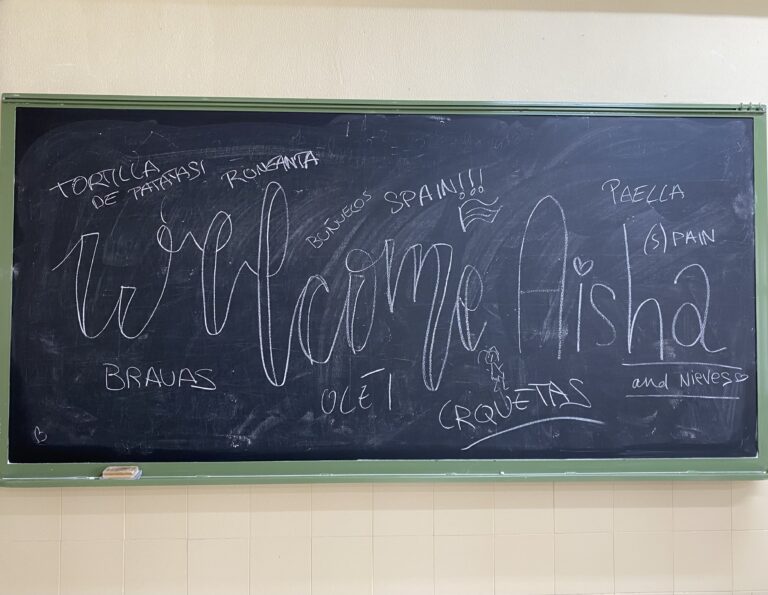 TORTILLA
DE PATATAS!
BUÑUELOS
SPAIN!!!
PAELLA
(S)PAIN
Welcome Aisha
and Nieves
BRAVAS
OLÉ!
CRQUETAS